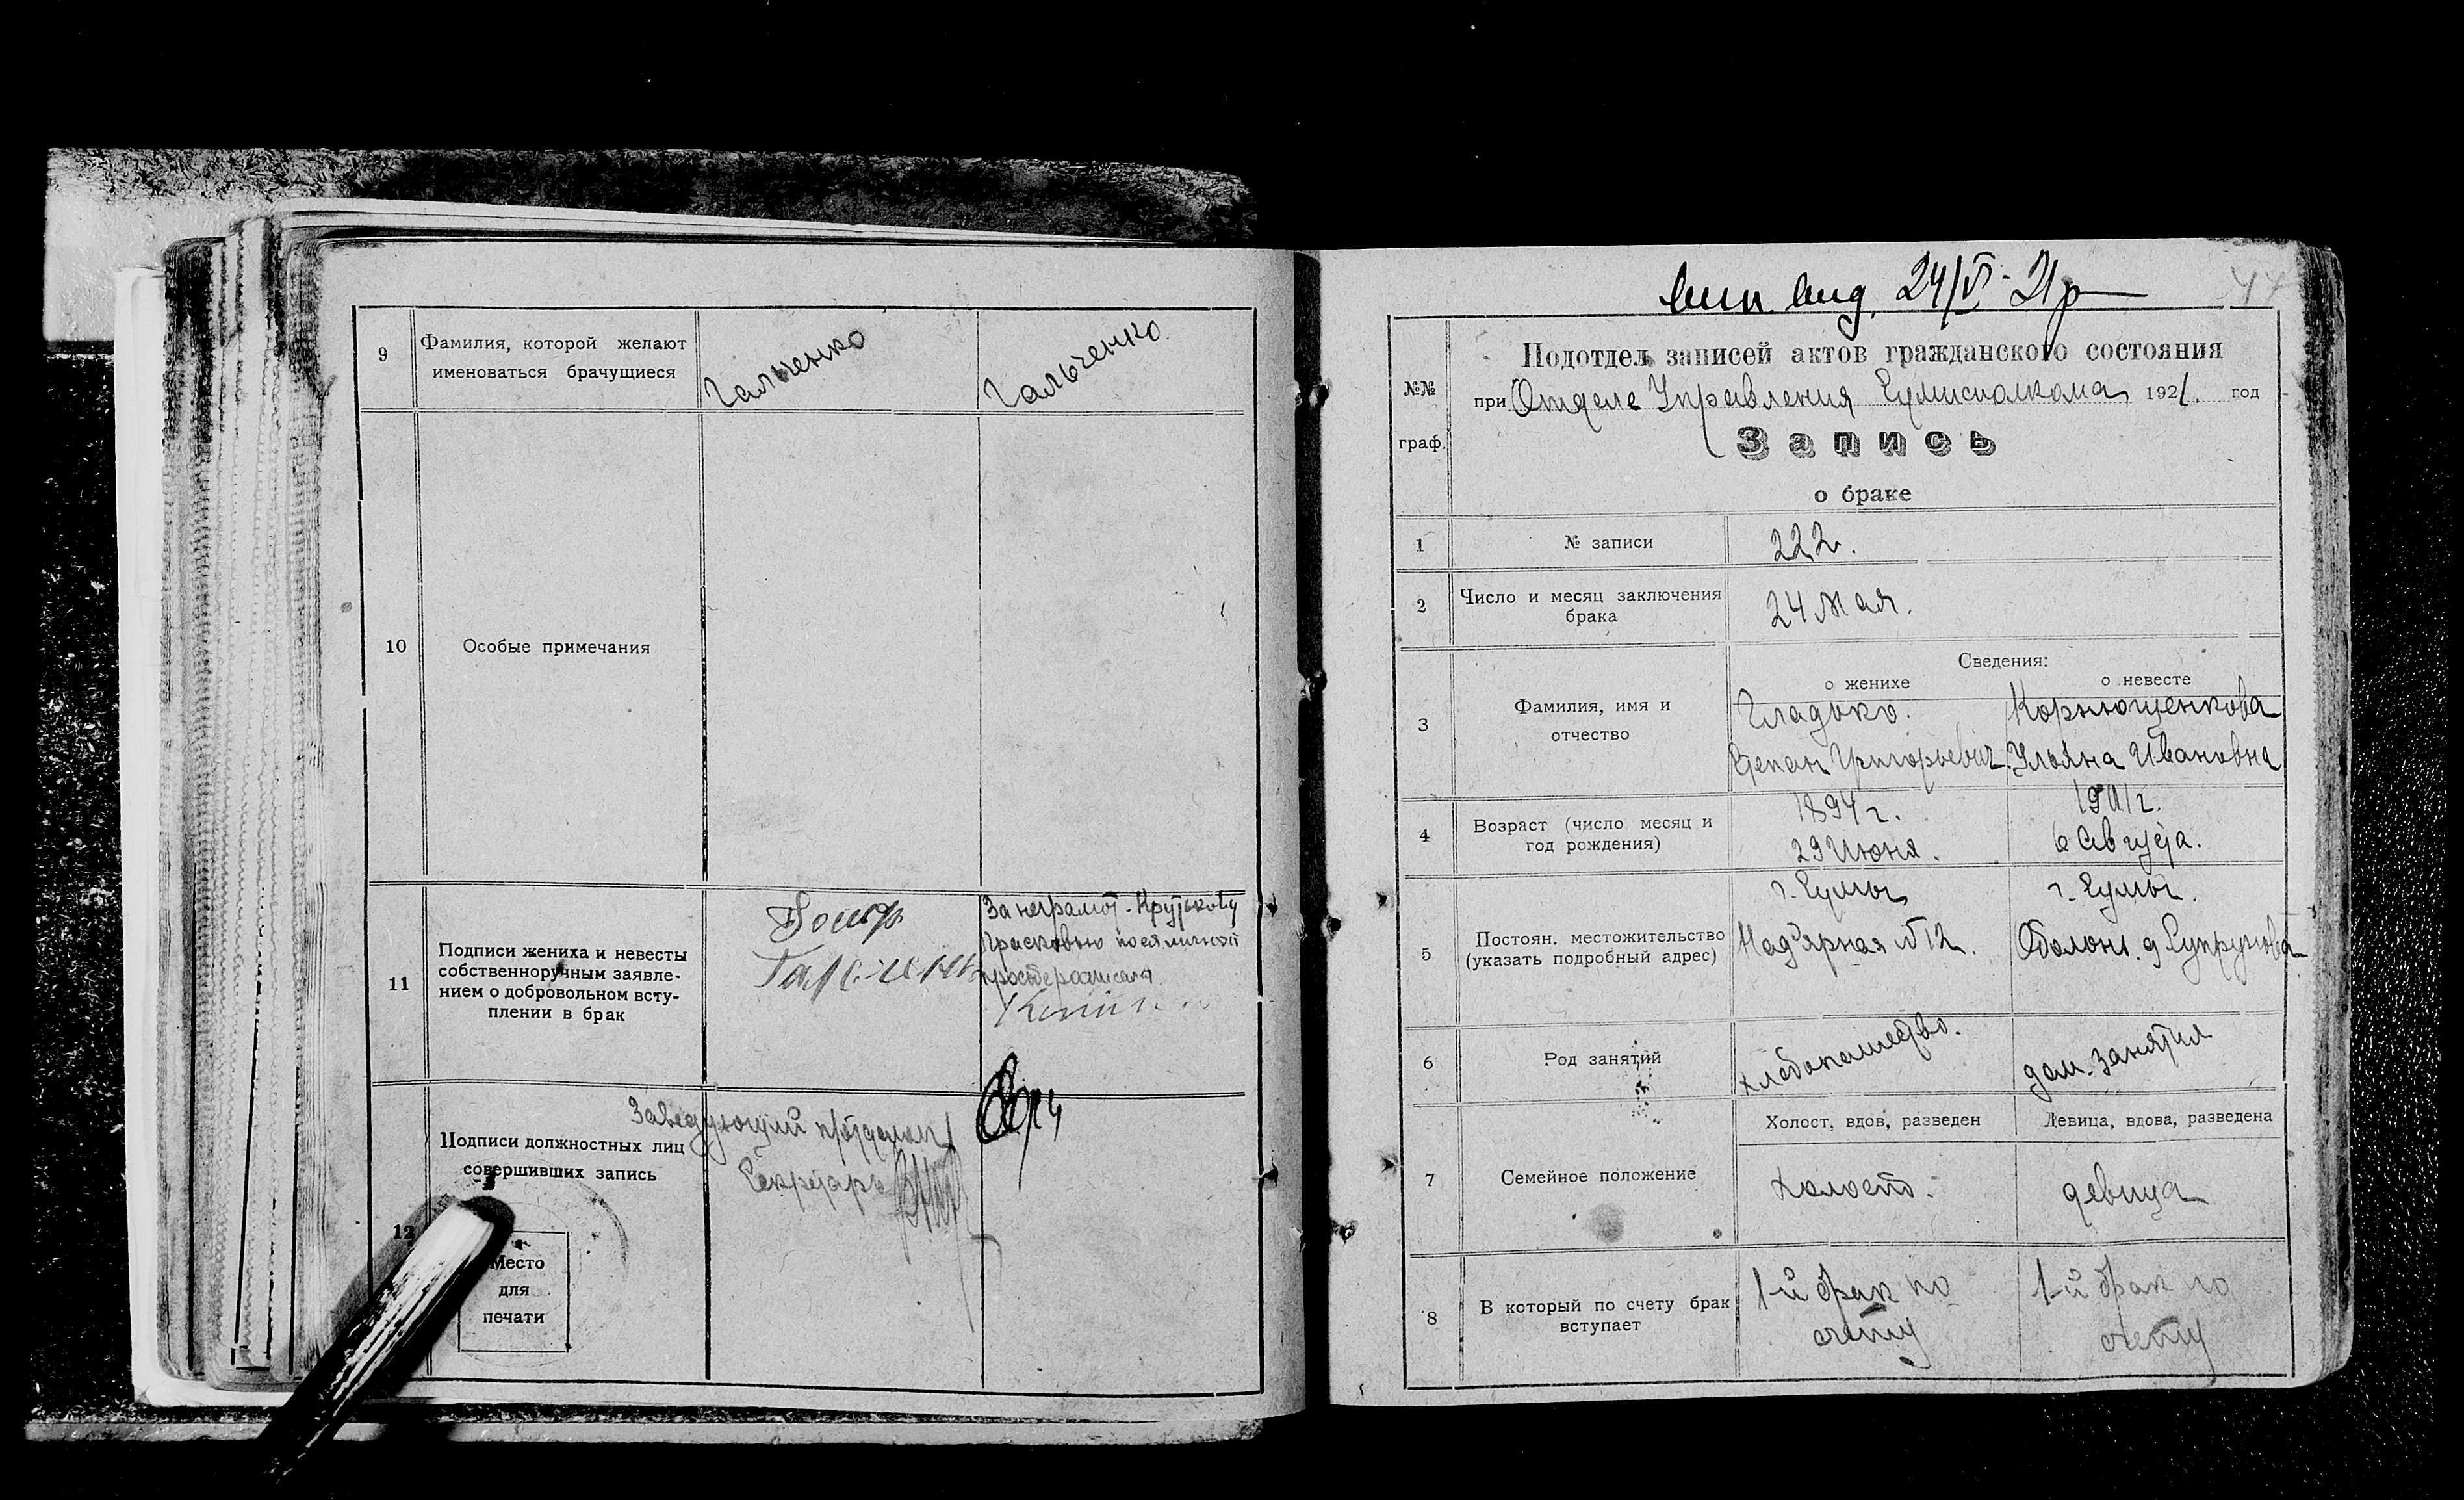 9
Фамилия, которой желают
именоваться брачущиеся
Гальченко
Гальченко.
10
Особые примечания
11
Подписи жениха и невесты
собственноручным заявле-
нием о добровольном всту-
плении в брак
За неграмот. Крутькову
Прасковью по ея личной
просьбе росписался
12
Подписи должностных лиц
совершивших запись
Заведующий п/отделом
Секретарь
Место
для
печати
вип. вид. 24/V - 21 р
44
№№
граф.
Подотдел записей актов гражданского состояния
при Отделе Управления Сумисполкома 1921. год
Запись
о браке
1
№ записи
222.
2
Число и месяц заключения
брака
24 мая.
3
Фамилия, имя и
отчество
Сведения:
о женихе
о невесте
Гладько.
Степан Григорьевич.
Корнющенкова
Ульяна Ивановна
4
Возраст (число месяц и
год рождения)
1894 г.
29 Июня.
1901 г.
6 Августа.
5
Постоян. местожительство
(указать подробный адрес)
г. Сумы
Над'ярная № 12.
г. Сумы.
Оболонь. д Супрунова
6
Род занятий
хлебопашество.
дом. занятия
7
Семейное положение
Холост, вдов, разведен
Девица, вдова, разведена
холост.
девица
8
В который по счету брак
вступает
1-й брак по
счету
1-й брак по
счету